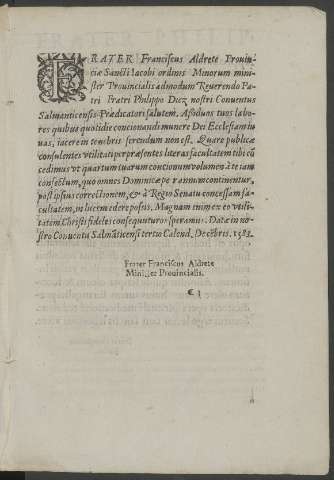 FRATER Franciscus Aldrete Prouin
ciæ Sancti Iacobi ordinis Minorum mini
ster Prouincialis admodum Reuerendo Pa
tri Fratri Philippo Diez nostri Conuentus
Salmanticensis Prædicatori salutem. Assiduos tuos labo
res quibus quotidie concionandi munere Dei Ecclesiam iu
uas, iacere in tenebris ferendum non est. Quare publicæ
consulentes vtilitati per præsentes literas facultatem tibi cō
cedimus vt quartum tuarum concionum volumen à te iam
confectum, quo omnes Dominicæ per annum continentur,
post ipsius correctionem, & à Regio Senatu concessam fa
cultatem, in lucem edere possis. Magnam enim ex eo vtili-
tatem Christi fideles consequuturos speramus. Datæ in no-
stro Conuentu Salmāticensi tertio Calend. Decēbris. 1583.
Frater Franciscus Aldrete
Minister Prouincialis.
€ 3